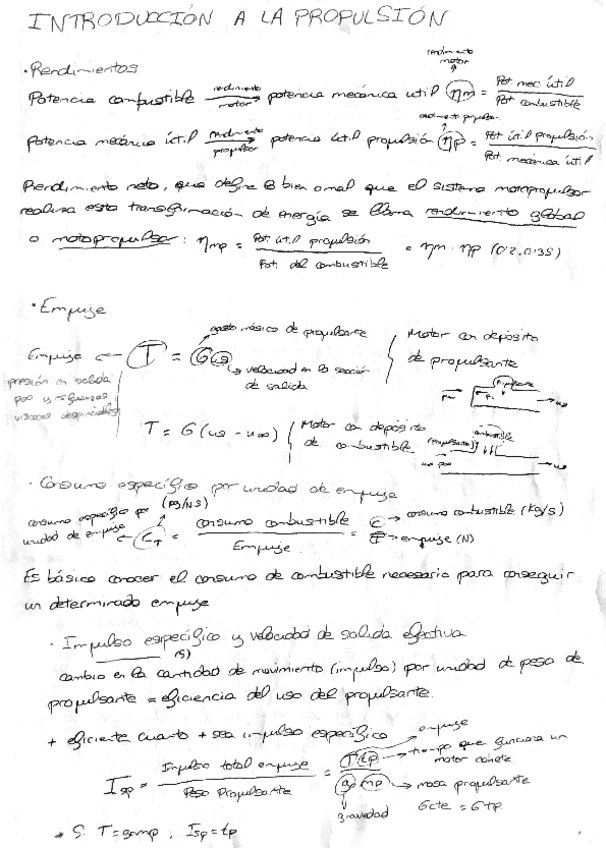 INTRODUCCIÓN A LA PROPULSIÓN
· Rendimientos
rendimiento motor
Potencia combustible → (rendimiento motor) potencia mecánica util (ηm) = Pot. mec útil / Pot combustible
Potencia mecánica útil → (rendimiento propulsor) potencia útil propulsión (ηp) = Pot útil propulsión / Pot. mecánica útil
Rendimiento neto, que define lo bien o mal que el sistema motopropulsor
realiza esta transformación de energía se llama rendimiento global
o motopropulsor: ηmp = Pot. útil propulsión / Pot. del combustible = ηm · ηp (0'2-0'35)
· Empuje
gasto másico de propulsante
Empuje ← (T) = G us
→ velocidad en la sección de salida
Motor con depósito
de propulsante
presión en salida
viscosos despreciables
T = G(us - u∞)
Motor con depósito
de combustible
· Consumo específico por unidad de empuje
consumo específico por unidad de empuje ← (CT) = consumo combustible / Empuje = c → consumo combustible (kg/s) / T → empuje (N)
Es básico conocer el consumo de combustible necesario para conseguir
un determinado empuje
· Impulso específico y velocidad de salida efectiva
(s)
cambio en la cantidad de movimiento (impulso) por unidad de peso de
propulsante = eficiencia del uso del propulsante.
+ eficiente cuanto + sea impulso específico
Isp = Impulso total empuje / Peso Propulsante = T tp / g0 mp
→ empuje
→ tiempo que funciona un motor cohete
→ masa propulsante
gravedad
G cte = G tp
* Si T = g0mp, Isp = tp